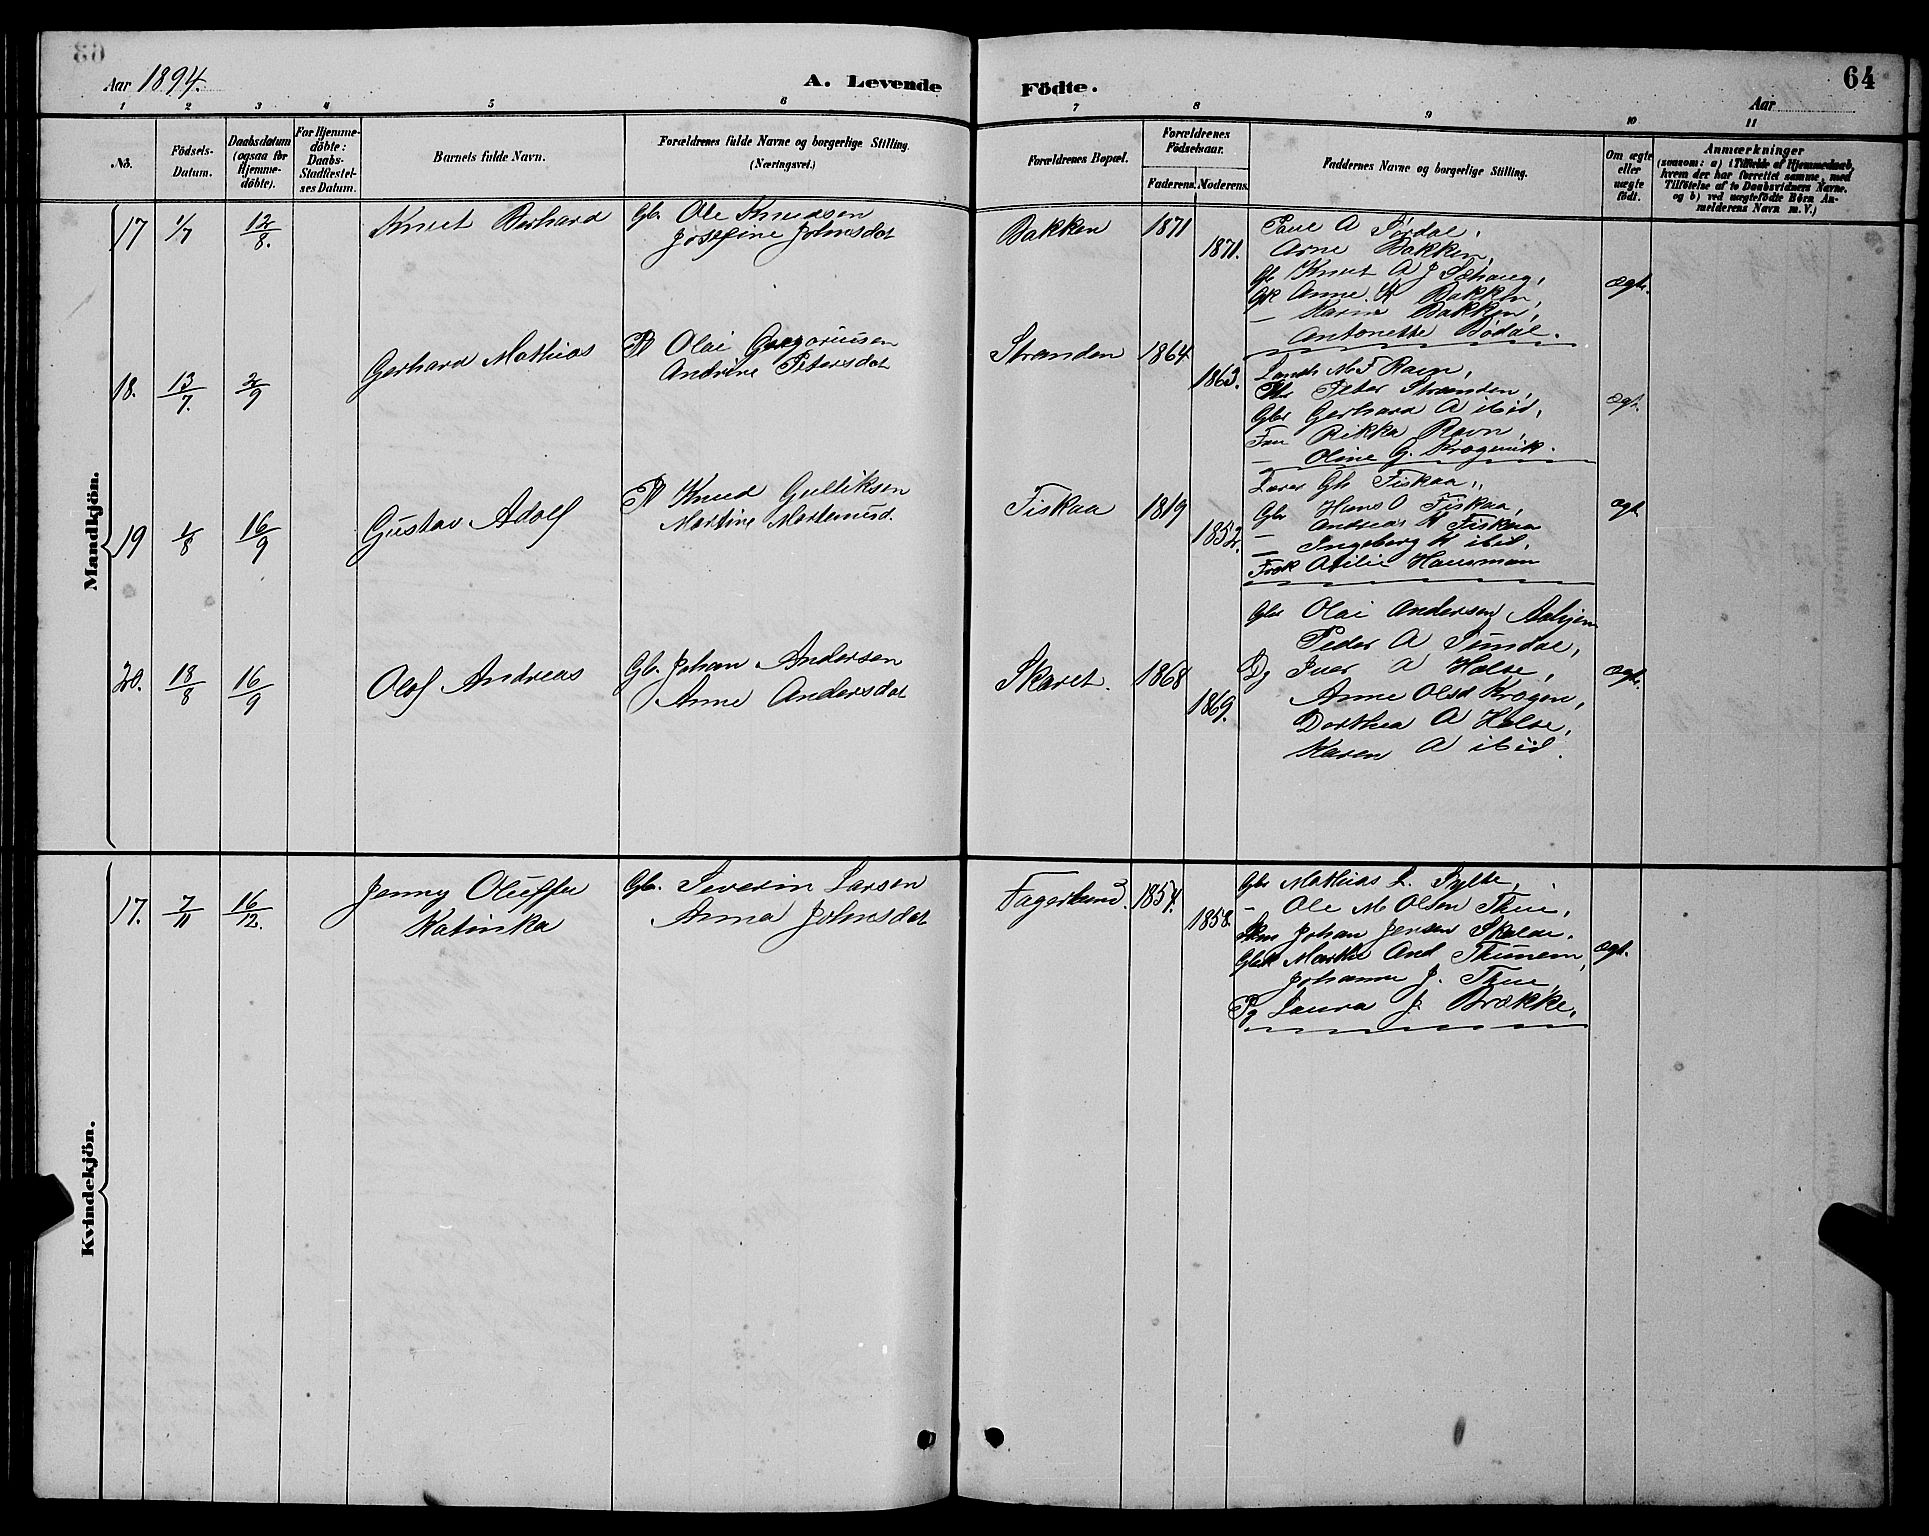 63
Aar 1894.
A. Levende
Födte.
64
Aar
1 2 3 4 5 6 7 8 9 10 11
No.
Födsels-Datum.
Daabsdatum (ogsaa for Hjemme-döbte).
For Hjemme-döbte: Daabs-Stadfæstel-ses Datum.
Barnets fulde Navn.
Forældrenes fulde Navne og borgerlige Stilling. (Næringsvei.)
Forældrenes Bopæl.
Forældrenes Födselsaar.
Faderens. Moderens.
Faddernes Navne og borgerlige Stilling.
Om ægte eller uægte födt.
Anmærkninger
(saasom: a) i Tilfælde af Hjemmedaab, hvem der har forrettet samme, med Tilföielse af to Daabsvidners Navne. og b) ved uægtefödte Börn An-melderens Navn m. V.)
Mandkjön.
17 1/7 12/8. Knut Berhard Gbr Ole Knudsen
Josefine Johnsdat
Bakken 1871 1871.
Paul A Sørdal,
Arne Bakken,
Gbr Knut A J
Gk Anne K Bakken,
— Karin Bakken,
Antonette Bødal.
ægt.
18. 13/7. 2/9 Gerhard Mathias Pl Olai Gregoriusen
Andrine Petersdat
Stranden 1864 1863.
Landh M F Ravn,
Peter Stranden,
Gbr Gerhard A ibid,
Fru Rikka Ravn,
— Oline G. Krogevik.
ægt.
19 1/8 16/9 Gustav Adolf Pl Knud Gulliksen
Martine Martinusd.
Fiskaa 1819 1852.
Lærer Gh Fiskaa,
Gbr Hans O Fiskaa,
— Andreas H Fiskaa
— Ingeborg H ibid,
Frøk Otilie Hansman
ægt
20. 18/8 16/9 Olaf Andreas Gb. Johan Andersen
Anne Andersdat
Skaret. 1868 1869.
Gbr Olai Andersen
Peder A Sundal,
Pg Iver A Halse,
Anne Olsd Krogen,
Dorthea A Halse,
Karen A ibid.
ægt.
Kvindekjön.
17. 7/11 16/12. Jenny Oluffa
Katinka
Gb. Severin Larsen
Anna Johnsdat
Fagerlund. 1854. 1858.
Gbr Mathias L. Sylte,
— Ole M Olsen Thue,
Johan Jensen
Gbk Marthe And Thunem,
Johanna J. Thue,
Pg Laura J. Brække,
ægt.